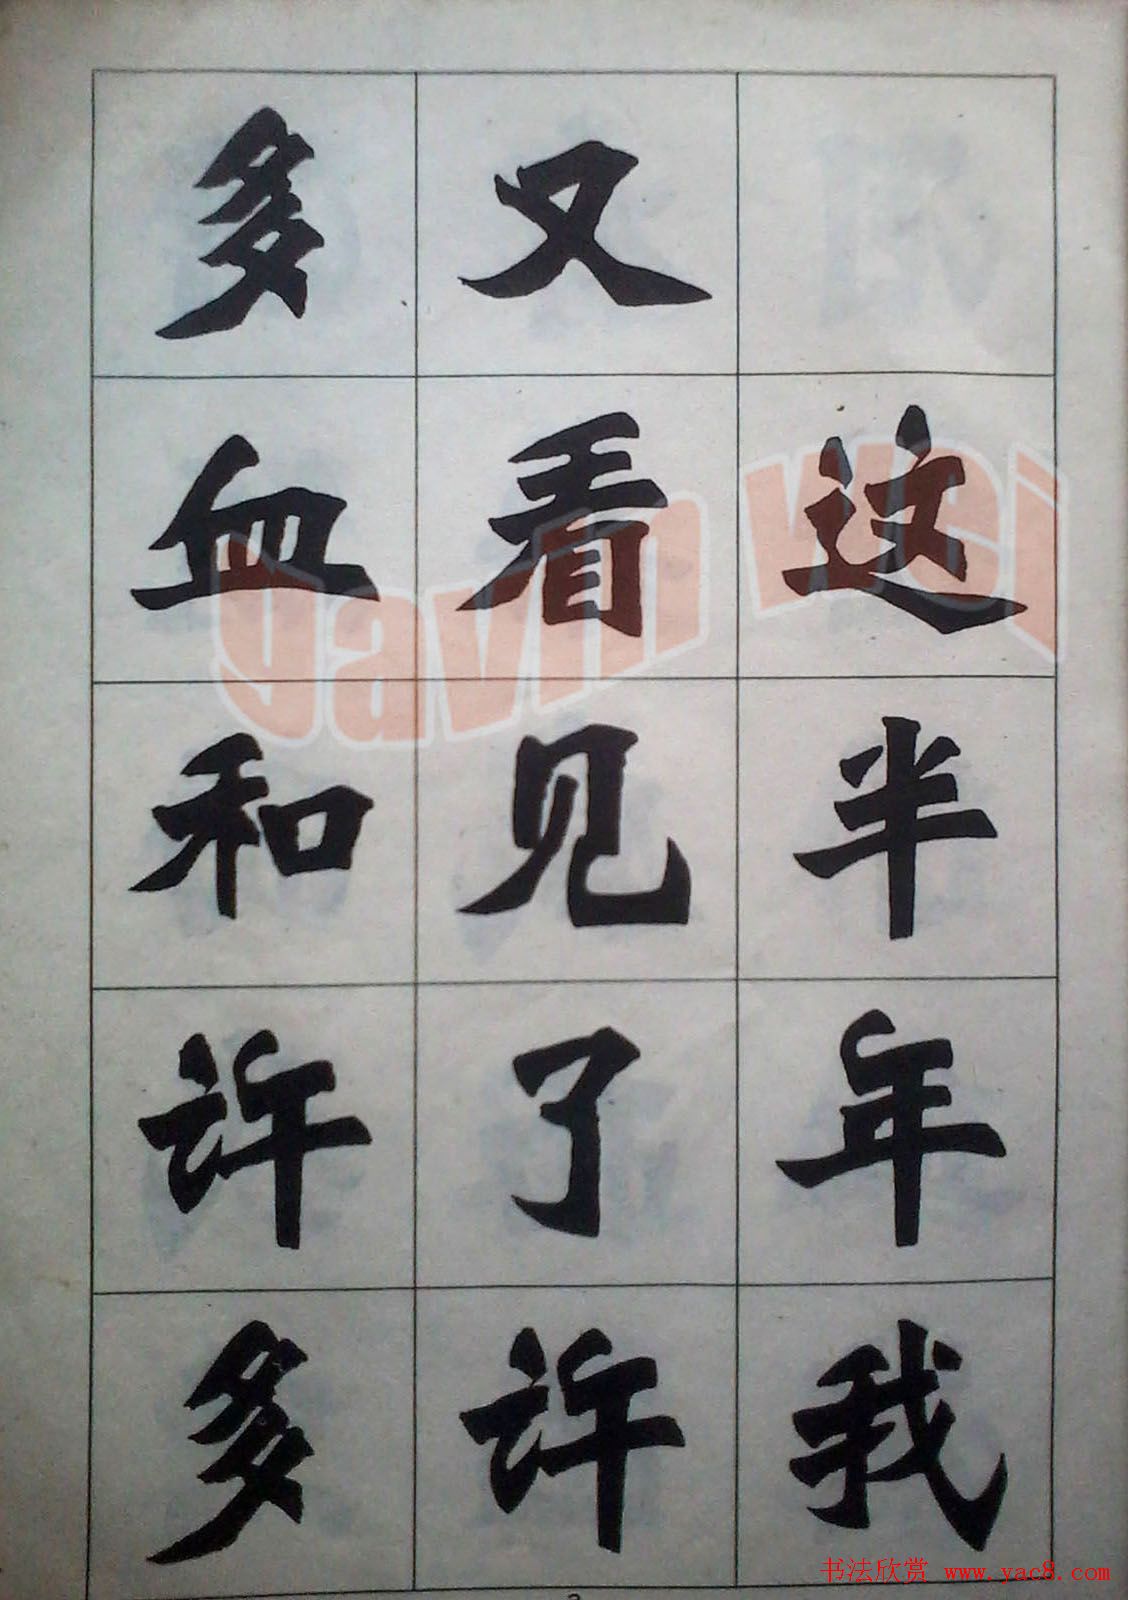 这半年我
又看见了许
多血和许多
Javin wei
书法欣赏 www.yac8.com